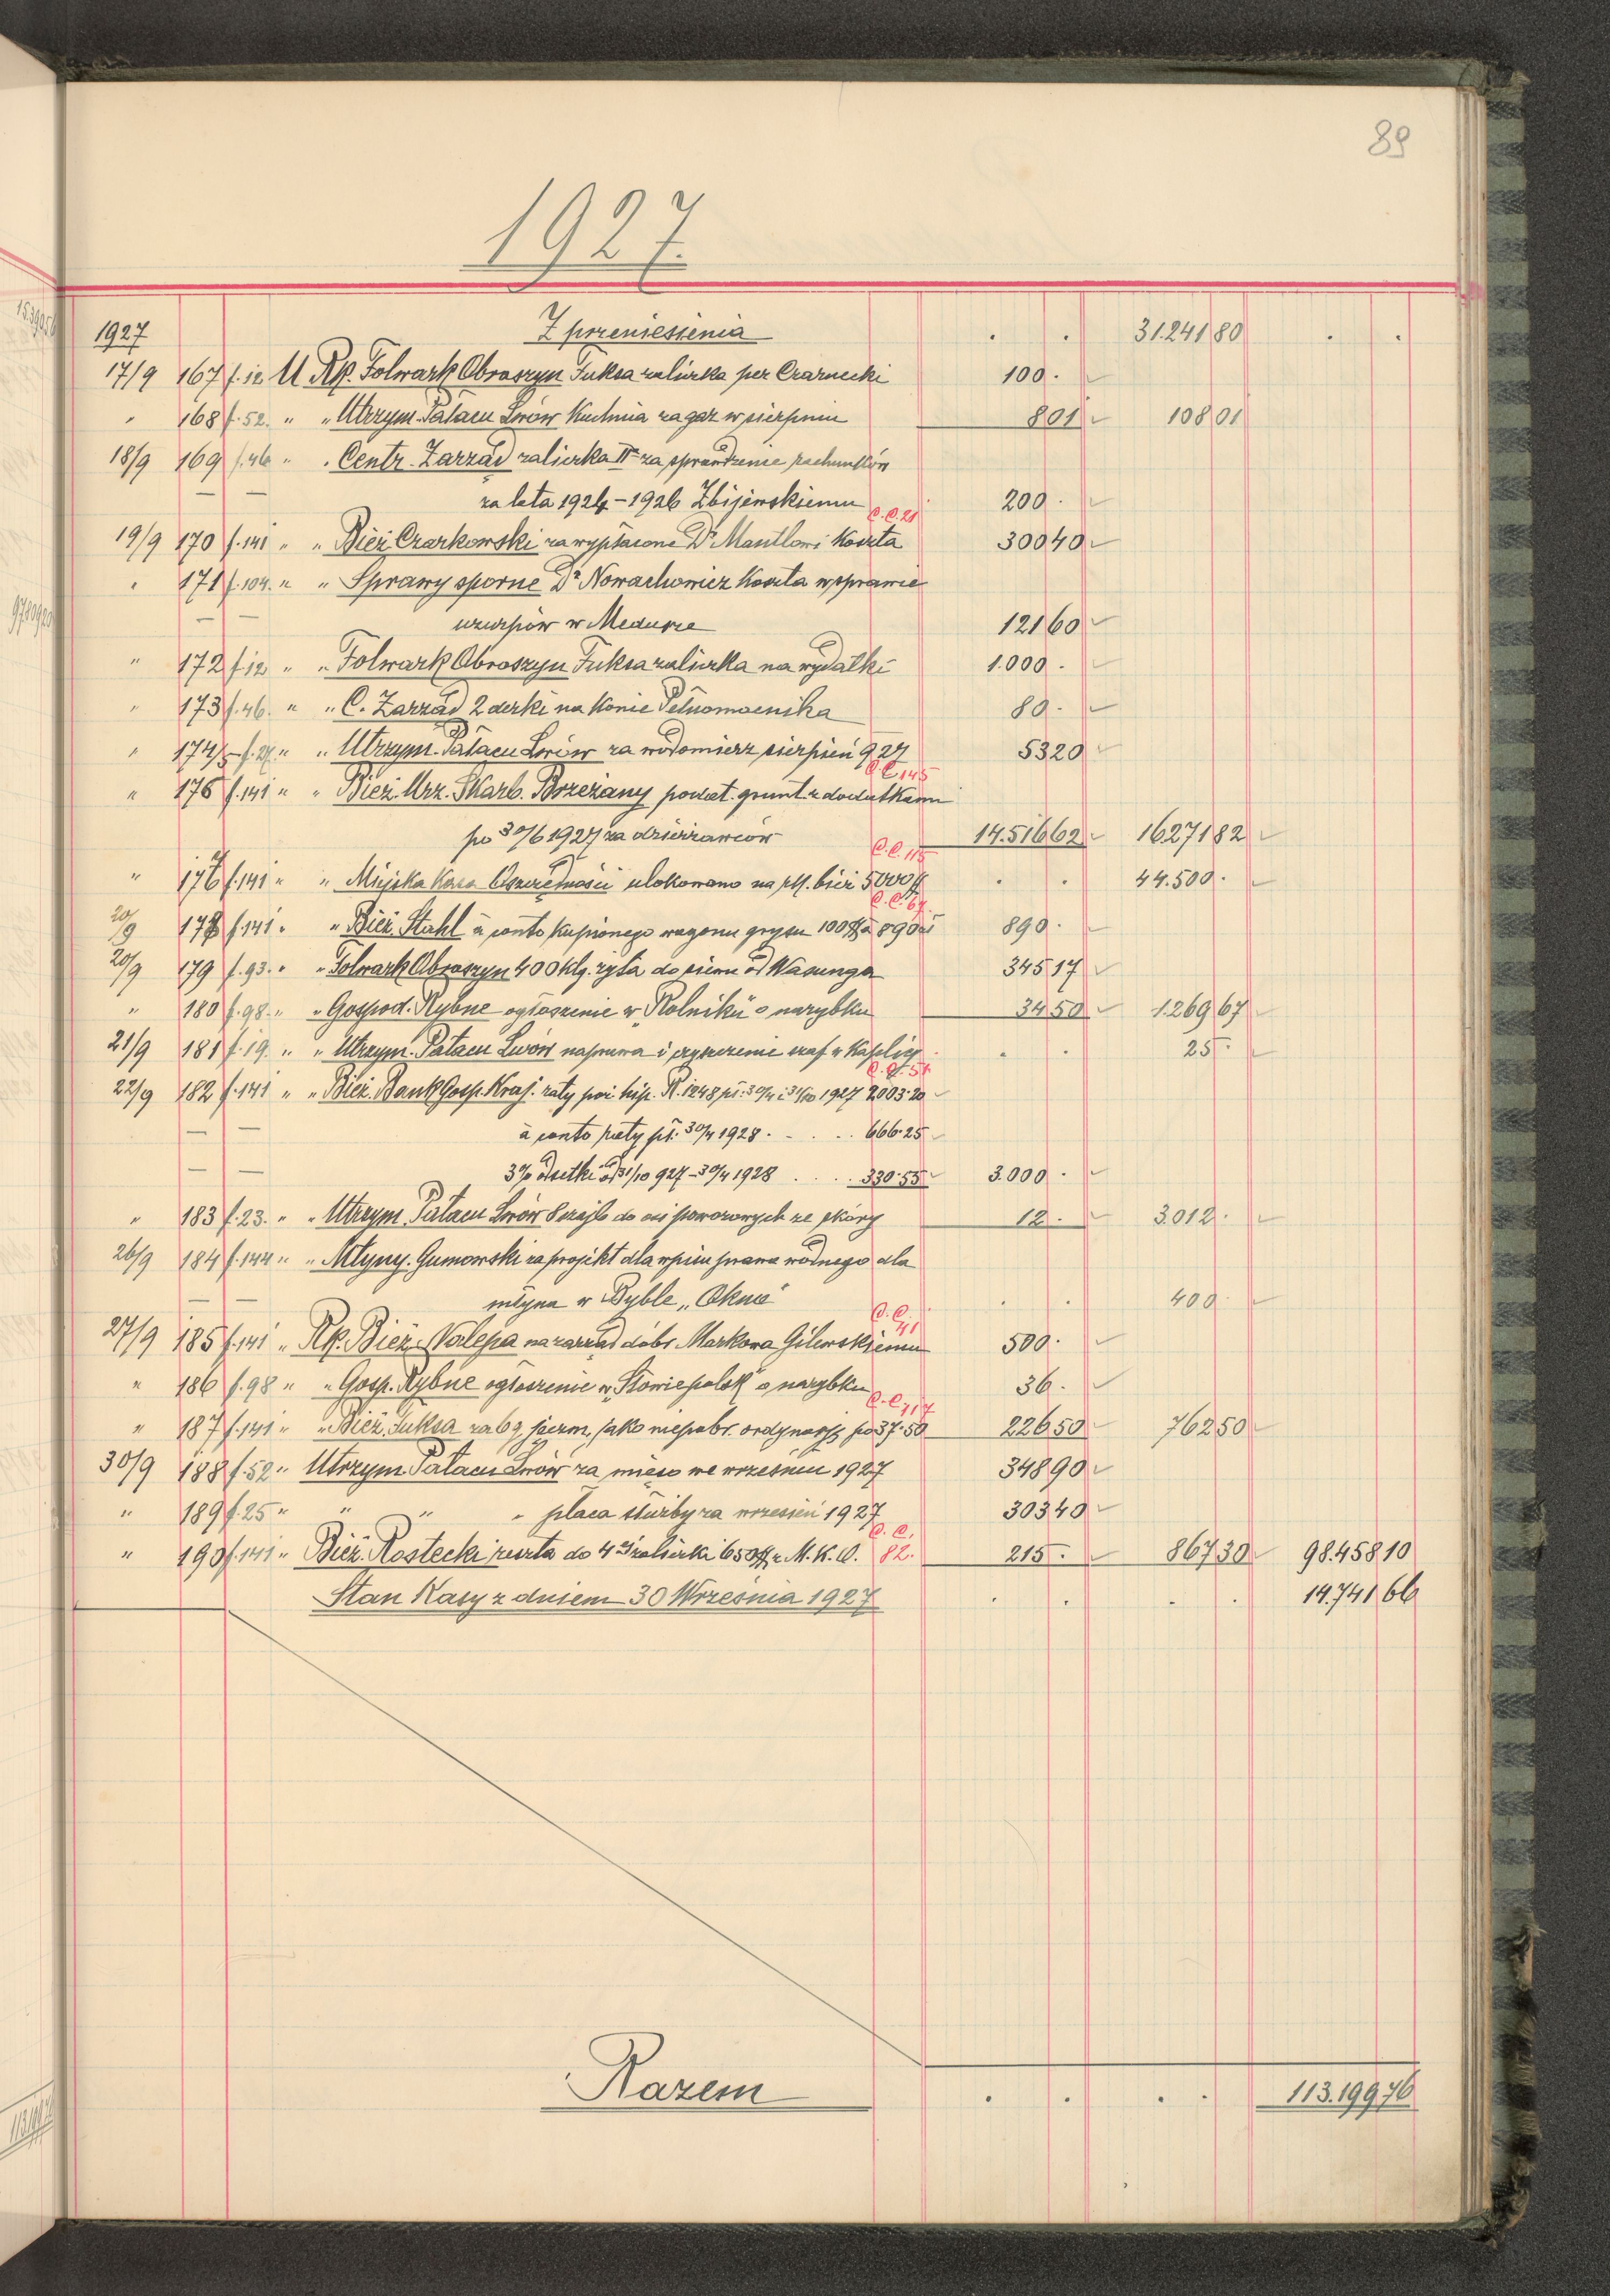 89
1927.
1927 Z przeniesienia . . 31.241 80 . .
17/9 167 f. 12 U Rp. Folwark Obroszyn Fuksa zaliczka per Czarnecki 100 .
" 168 f. 52. " " Utrzym. Pałacu Lwów Kuchnia za gaz w sierpniu 8 01 108 01
18/9 169 f. 46 " " Centr. Zarząd zaliczka II za sprawdzenie rachunków
— — za lata 1924–1926 Zbijewskiemu 200 .
C.C. 21
19/9 170 f. 141 " " Bież. Czarkowski za wypłacone Dr Mantlowi Koszta 300 40
" 171 f. 104. " " Sprawy sporne Dr Nowachowicz Koszta w sprawie
— — w Medusze 121 60
" 172 f. 12 " " Folwark Obroszyn Fuksa zaliczka na wydatki 1.000 .
" 173 f. 46. " " C. Zarząd 2 derki na Konie Pełnomocnika 80 .
" 174/5 f. 27. " " Utrzym. Pałacu Lwów za wodomierz sierpień 927 53 20
C.C. 145
" 176 f. 141 " " Bież. Urz. Skarb. Brzeżany podat. grunt. z dodatkami
po 30/6 1927 za dzierżawców 14.516 62 16271 82
C.C. 115
" 176 f. 141 " " Miejska Kasa Oszczędności ulokowano na rk. bież 5000 $ . . 44.500 .
C.C. 67.
20/9 178 f. 141 . " Bież. Stahl à conto kupionego wagonu grysu 100 $ à 890 zł 890 .
20/9 179 f. 93. " " Folwark Obroszyn 400 klg. żyta do siewu od Wasunga 345 17
" 180 f. 98. " " Gospod. Rybne ogłoszenie w „Rolniku" o narybku 34 50 1.269 67
21/9 181 f. 19. " " Utrzym. Pałacu Lwów naprawa i czyszczenie szaf w Kaplicy . . 25 .
C.C. 51
22/9 182 f. 141 " " Bież. Bank Gosp. Kraj. raty poż. hip. R. 1248 pł. 30/4 i 31/10 1927 2003·20
— — à conto raty pł. 30/4 1928 . . . . 666·25
— — 3% Odsetki od 31/10 927–30/4 1928 . . . . 330·55 3.000 .
" 183 f. 23. " " Utrzym. Pałacu Lwów 8 szajb do osi powozowych ze skóry 12 . 3.012 .
26/9 184 f. 144 " " Młyny. Gumowski za projekt dla wpisu prawa wodnego dla
— — młyna w Dyble „Okno" . . 400 .
C.C. 41
27/9 185 f. 141 " Rp. Bież. Nalepa na zarząd dóbr Markowa Gilewskiemu 500 .
" 186 f. 98 " " Gosp. Rybne ogłoszenie w „Słowie polsk" o narybku 36 .
C.C. 117
" 187 f. 141 " " Bież. Fuksa za 6 q jęczm. jako niepobr. ordynaryę po 37·50 226 50 762 50
30/9 188 f. 52 " Utrzym. Pałacu Lwów za mięso we wrześniu 1927 348 90
" 189 f. 25 " " " " płaca służby za wrzesień 1927 303 40
C.C. 82.
" 190 f. 141 " Bież. Rostecki reszta do 4 zaliczki 650 $ z M. K. O. 215 . 867 30 98.458 10
Stan Kasy z dniem 30 Września 1927 . . . . 14.741 66
Razem . . . . 113.199 76